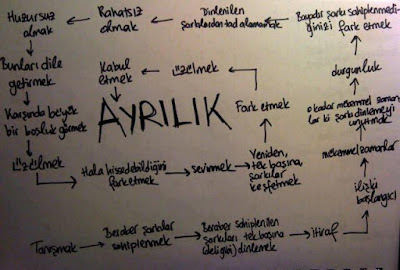 Huzursuz
olmak
Rahatsız
olmak
Dinlenilen
şarkılardan tad alamamak
Bayadır şarkı sahiplenmedi-
ğinizi fark etmek
Bunları dile
getirmek
Kabul
etmek
Üzülmek
durgunluk
Karşında büyük
bir boşluk görmek
AYRILIK
Fark etmek
o kadar mükemmel zaman-
lar ki şarkı dinlemeyi
unutmak
Üzülmek
Hala hissedebildiğini
farketmek
sevinmek
Yeniden,
tek başına,
şarkılar
keşfetmek
mükemmel zamanlar
ilişki
başlangıcı
Tanışmak
Beraber şarkılar
sahiplenmek
Beraber sahiplenilen
şarkıları tek başına
(deli gibi) dinlemek
itiraf